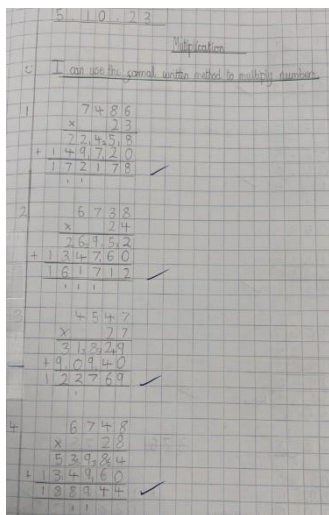 5.10.23
Mutiplication
I can use the formal written method to multiply numbers.
1
7486
x 23
22458
+ 149720
172178
2
6738
x 24
26952
+ 134760
161712
3
4547
x 27
31829
+ 90940
122769
4
6748
x 28
53984
+ 134960
188944